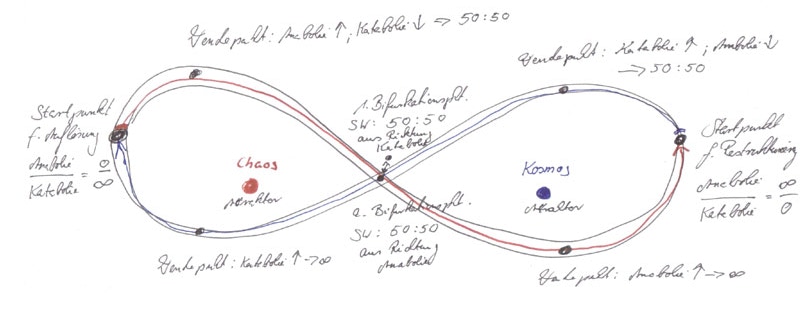 Wendepunkt: Anabolie ↑; Katabolie ↓ → 50:50
Wendepunkt: Katabolie ↑; Anabolie ↓
→ 50:50
Startpunkt
f. Auflösung
Anabolie
Katabolie
= 0
∞
Chaos
Attraktor
1. Bifurkationspkt.
SW: 50:50
aus Richtung
Katabolie
2. Bifurkationspkt.
SW: 50:50
aus Richtung
Anabolie
Kosmos
Attraktor
Startpunkt
f. Restrukturierung
Anabolie
Katabolie
= ∞
0
Wendepunkt: Katabolie ↑ → ∞
Wendepunkt: Anabolie ↑ → ∞